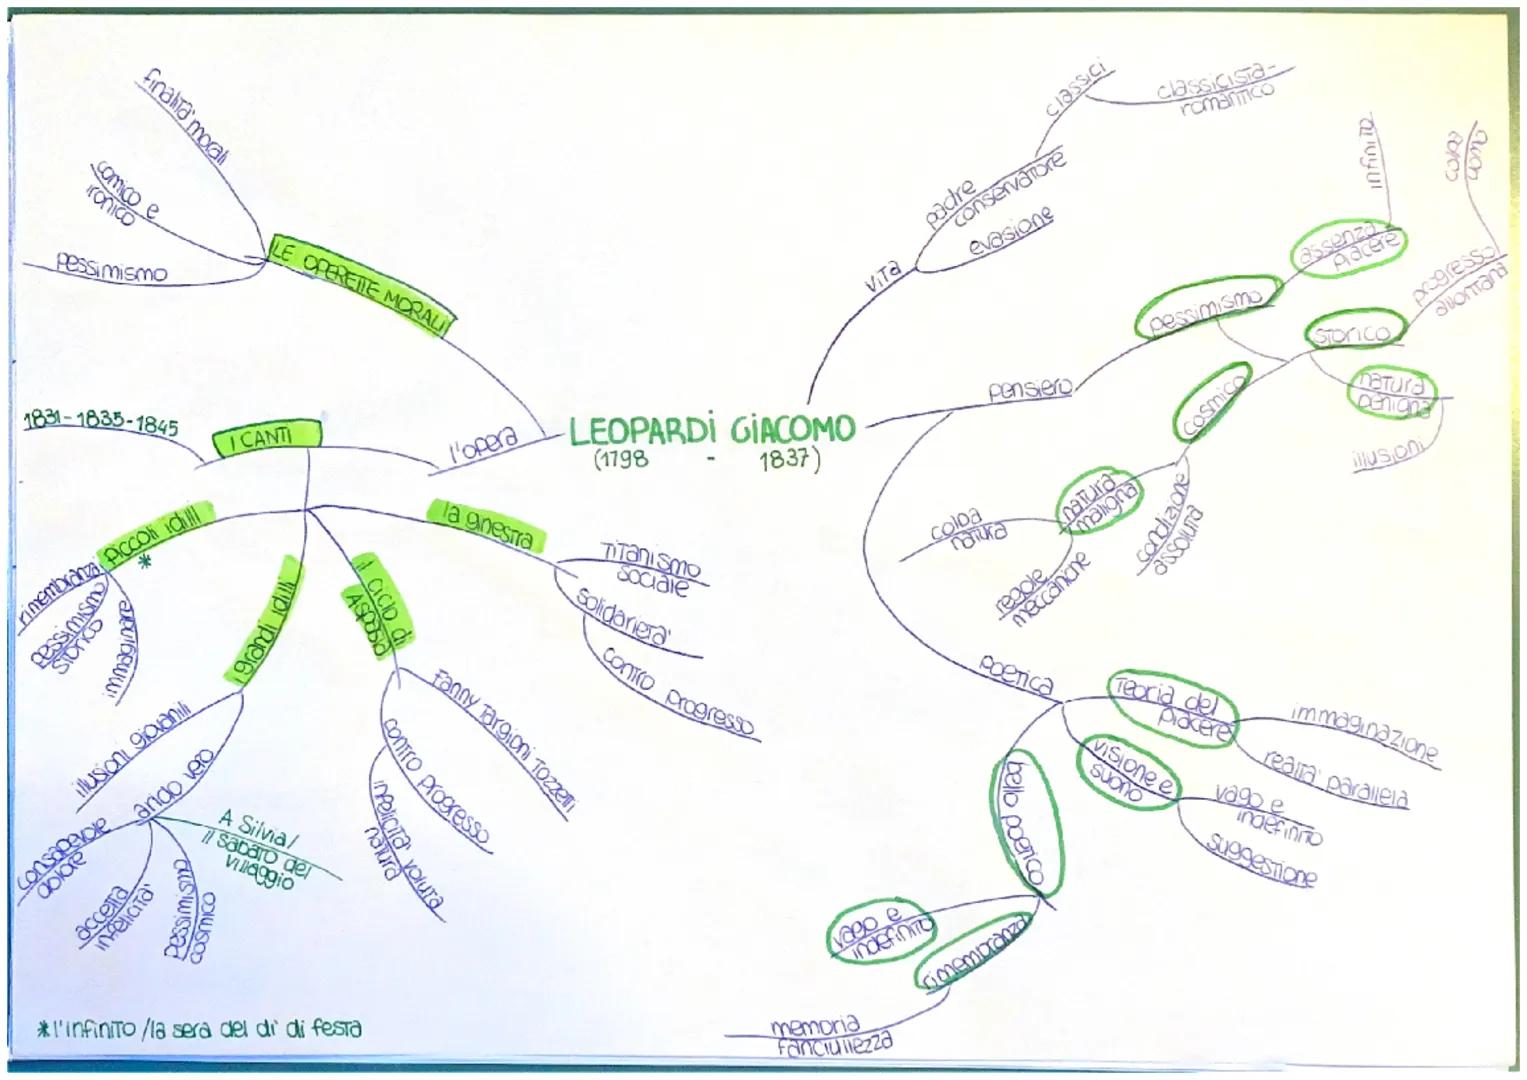 LEOPARDI GIACOMO
(1798 - 1837)
l'opera
LE OPERETTE MORALI
finalità morali
comico e
ironico
pessimismo
I CANTI
1831-1835-1845
piccoli idilli
*
rimembranza
pessimismo
storico
immaginare
i grandi idilli
illusioni giovanili
arido vero
consapevole
dolore
accetta
infelicità
pessimismo
cosmico
A Silvia/
il sabato del
villaggio
il ciclo di
Aspasia
Fanny Targioni Tozzetti
contro progresso
infelicità voluta
natura
la ginestra
titanismo
sociale
solidarietà
contro progresso
*l'infinito/la sera del dì di festa
vita
padre
conservatore
classici
classicista-
romantico
evasione
pensiero
pessimismo
assenza
piacere
infinito
storico
progresso
allontana
natura
benigna
illusioni
cosmico
natura
maligna
colpa
natura
regole
meccaniche
condizione
assoluta
poetica
Teoria del
piacere
immaginazione
realtà parallela
visione e
suono
vago e
indefinito
suggestione
bello poetico
vago e
indefinito
rimembranza
memoria
fanciullezza